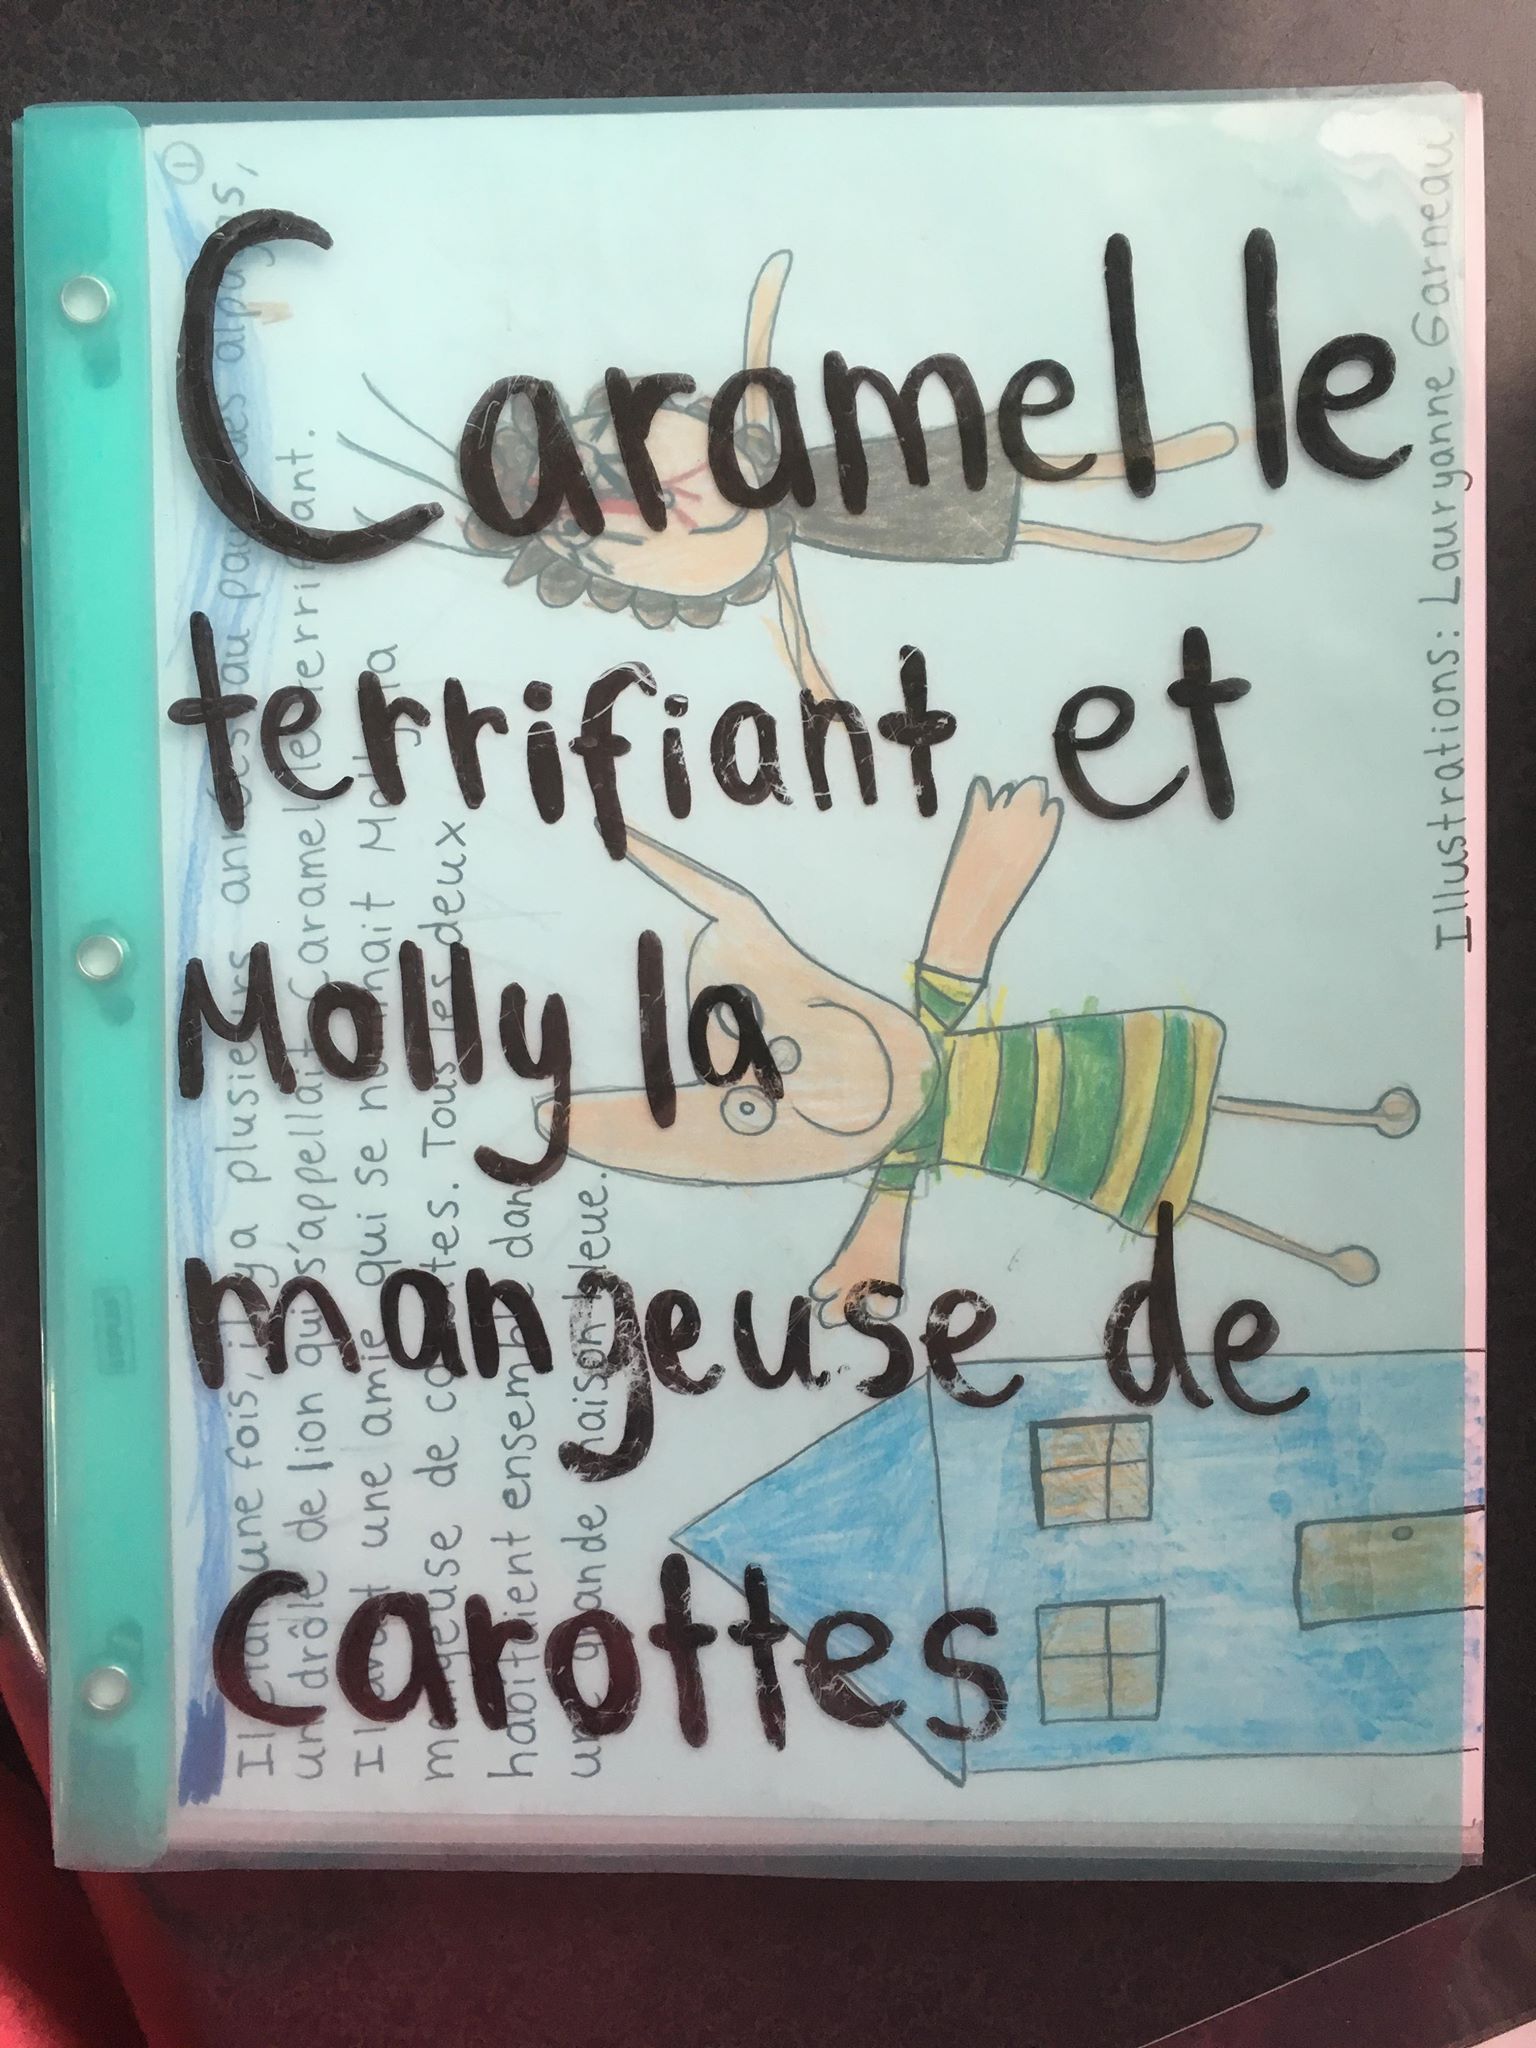 Caramel le
terrifiant et
Molly la
mangeuse de
Carottes
①
Il était une fois, il y a plusieurs années au pays des alpagas,
un drôle de lion qui s'appellait Caramel le terrifiant.
Il avait une amie qui se nommait Molly la
mangeuse de carottes. Tous les deux
habitaient ensemble dans
une grande maison bleue.
Illustrations: Lauryanne Garneau